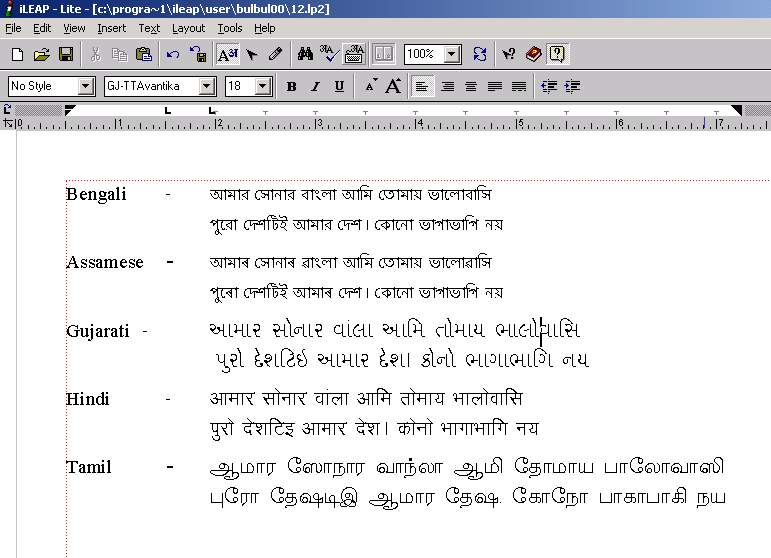 iLEAP - Lite - [c:\progra~1\ileap\user\bulbul00\12.lp2]
File Edit View Insert Text Layout Tools Help
100%
No Style GJ-TTAvantika 18 B I U A A
0 1 2 3 4 5 6 7
Bengali - আমার সোনার বাংলা আমি তোমায় ভালোবাসি
পুরো দেশটিই আমার দেশ। কোনো ভাগাভাগি নয়
Assamese - আমাৰ সোনাৰ ৱাংলা আমি তোমায় ভালোৱাসি
পুৰো দেশটিই আমাৰ দেশ। কোনো ভাগাভাগি নয়
Gujarati - આમાર સોનાર વાંલા આમિ તોમાય ભાલોવાસિ
પુરો દેશટિઇ આમાર દેશ। કોનો ભાગાભાગિ નય
Hindi - आमार सोनार वांला आमि तोमाय भालोवासि
पुरो देशटिइ आमार देश। कोनो भागाभागि नय
Tamil - ஆமார ஸோநார வாந்லா ஆமி தோமாய பாலோவாஸி
புரோ தேஷடிஇ ஆமார தேஷ. கோநோ பாகாபாகி நய